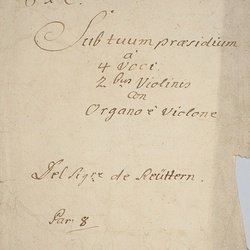 Sub tuum præsidium
a
4 Voci
2bus Violinis
con
Organo è Violone
Del Sigre de Reüttern.
Par: 8